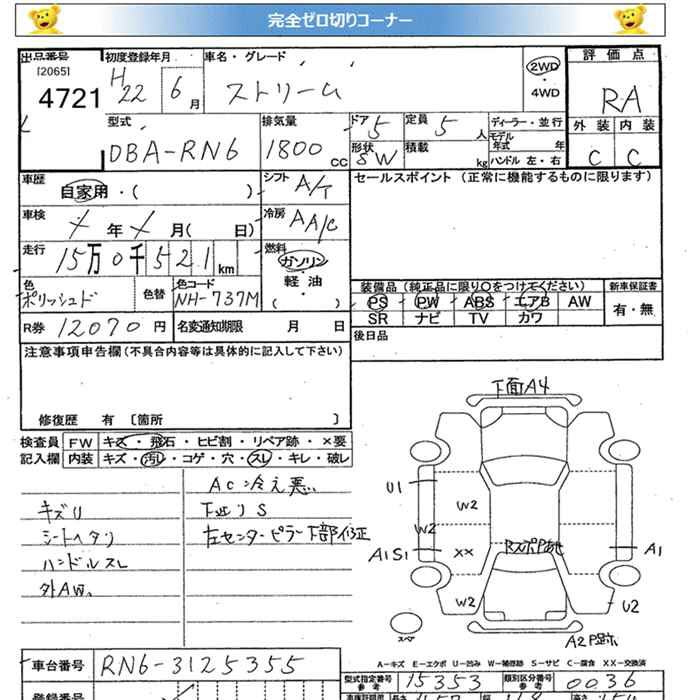 完全ゼロ切りコーナー
出品番号 初度登録年月 車名・グレード 評価点
[2065] 4721 H22 6月 ストリーム 2WD・4WD RA
型式 排気量 ドア 定員 ディーラー・並行 外装 内装
DBA-RN6 1800cc 5 5人 モデル年式 年 C C
形状 SW 積載 kg ハンドル 左・右
車歴 自家用・( ) シフト A/T セールスポイント (正常に機能するものに限ります)
車検 年 月( 日) 冷房 AA/C
走行 15万0千521km 燃料 ガソリン・軽油・( )
色 ポリッシュド 色替 色コード NH-737M 装備品 (純正品に限り○をつけてください) 新車保証書
PS PW ABS エアB AW 有・無
SR ナビ TV カワ
R券 12070円 名変通知期限 月 日 後日品
注意事項申告欄(不具合内容等は具体的に記入して下さい)
修復歴 有 〔箇所 〕
検査員 FW キズ・飛石・ヒビ割・リペア跡・×要
記入欄 内装 キズ・汚れ・コゲ・穴・スレ・キレ・破レ
AC冷え悪
キズリ 下廻りS
シートヘタリ 左センターピラー下部修正
ハンドルスレ
外AW、
下面A4
U1
W2
W2
A1S1 XX A1
W2 U2
スペア A2P跡
A-キズ E-エクボ U-凹み W-補修跡 S-サビ C-腐食 XX-交換済
車台番号 RN6-3125355 型式指定番号 参考 15353 類別区分番号 参考 0036
登録番号